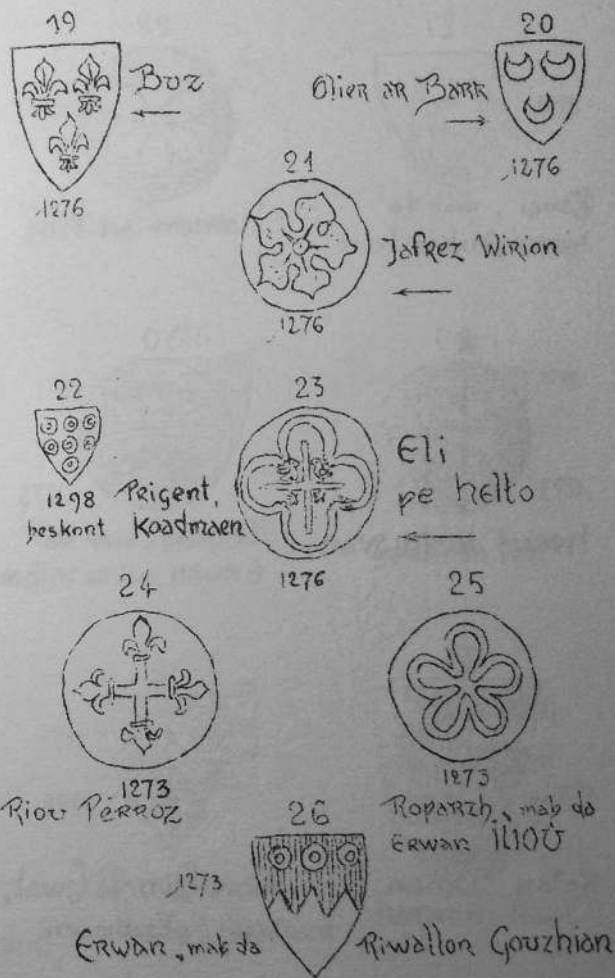 19
Buz
1276
20
Olier ar Bark
1276
21
Jafrez Wirion
1276
22
1298
beskont
Prigent,
Koadmaen
23
Eli
pe helto
1276
24
1273
Riou Perroz
25
1273
Roparzh, mab da
Erwan
26
1273
Erwan, mab da
Riwallon Gouzhian